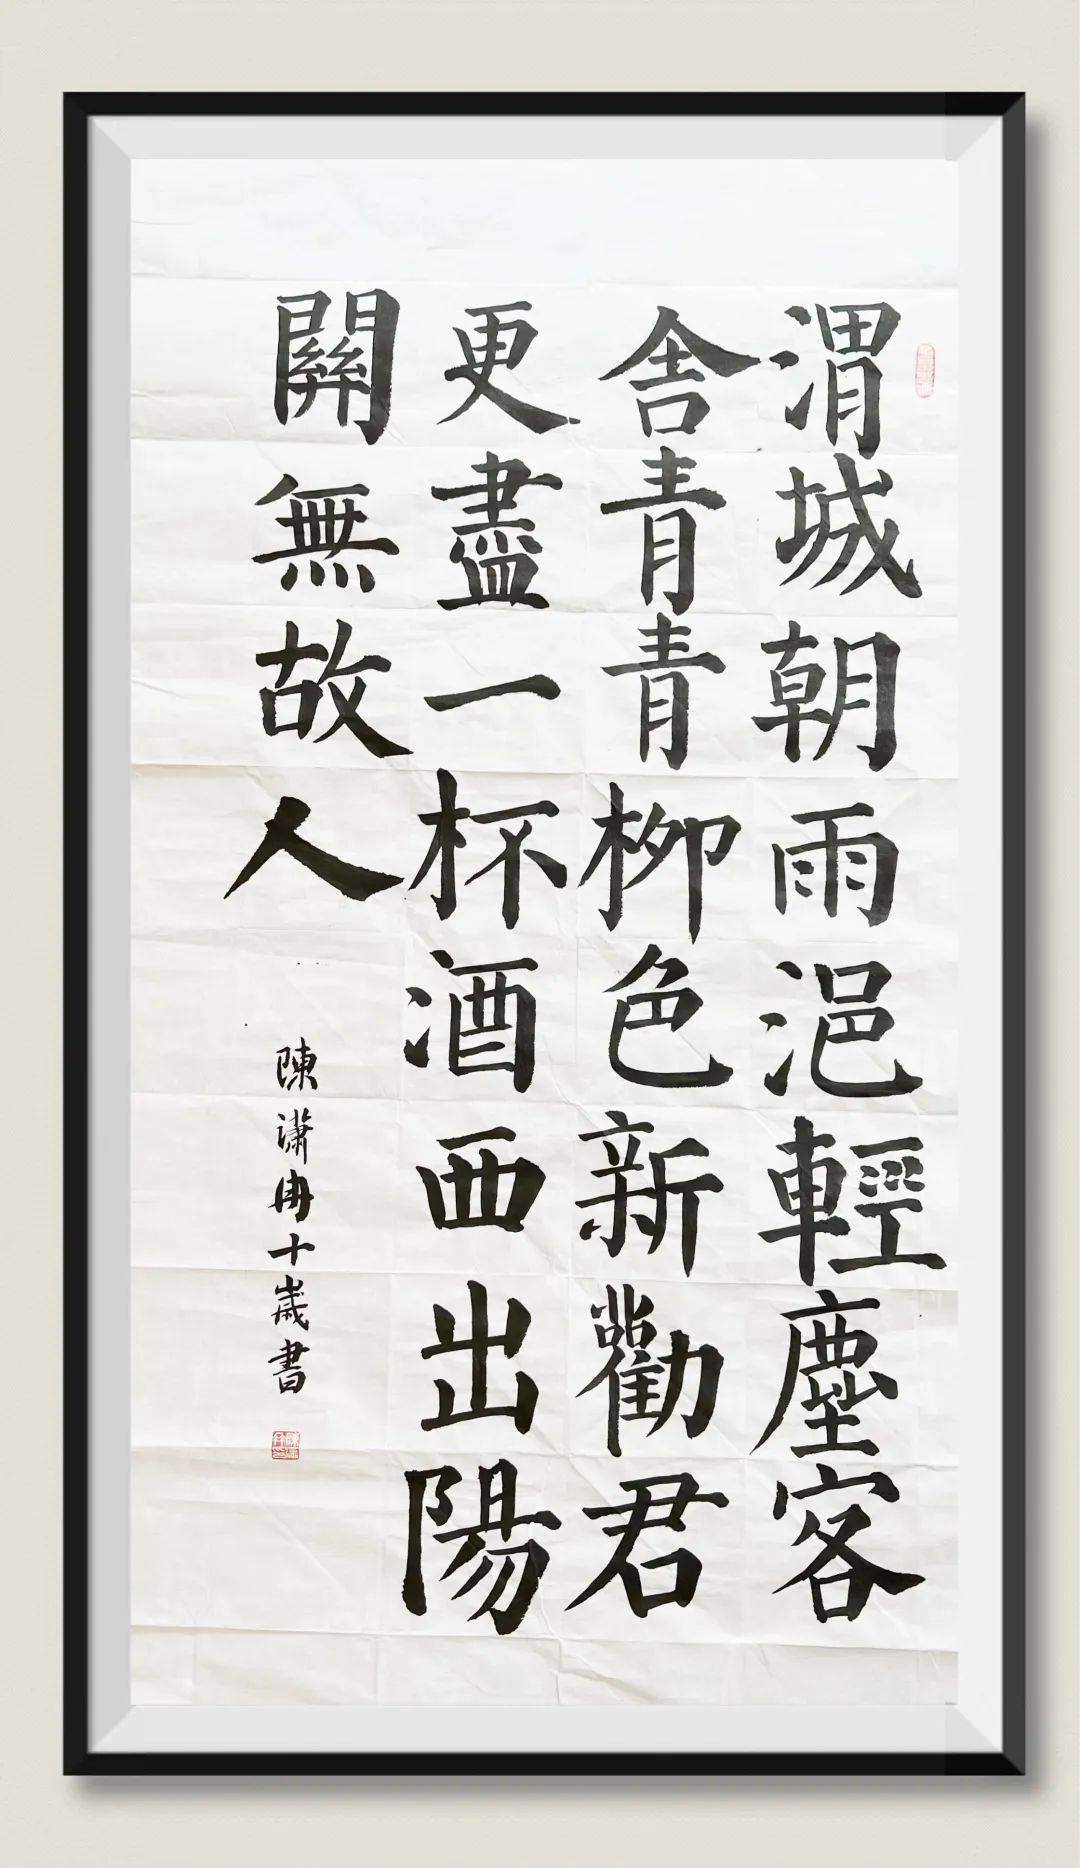 渭城朝雨浥輕塵客
舍青青柳色新勸君
更盡一杯酒西出陽
關無故人
陳潇冉十歲書